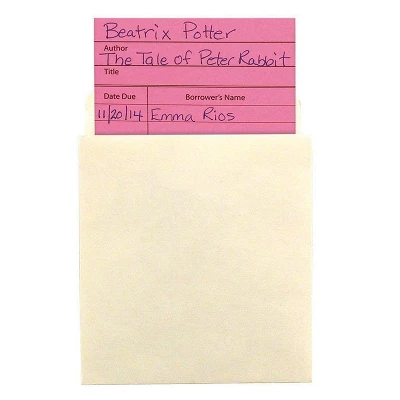 Beatrix Potter
Author
The Tale of Peter Rabbit
Title
Date Due Borrower's Name
11/20/14 Emma Rios